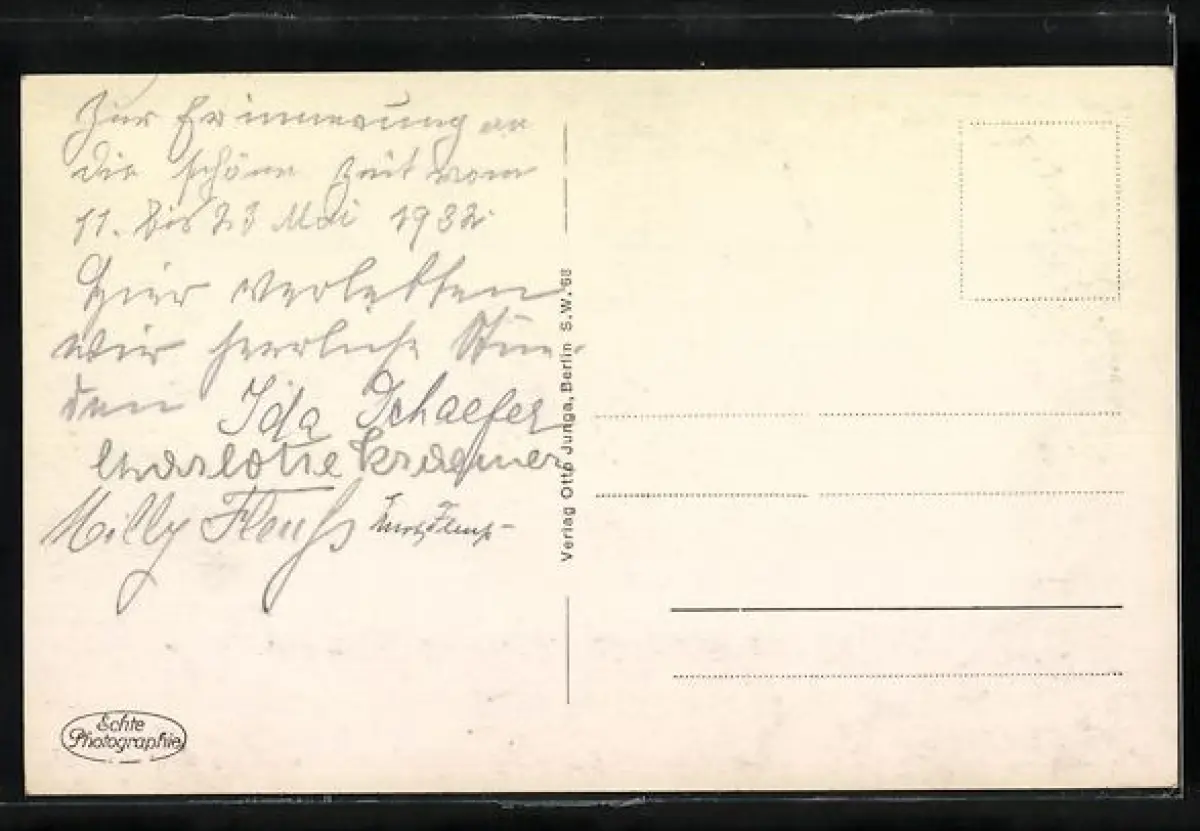 Zur Erinnerung an
die schöne Zeit vom
11. bis 23 Mai 1932.
Hier verlebten
wir herrliche Stun-
den Ida Schaefer
Charlotte Kraemer
Milly
Verlag Otto Junga, Berlin S.W. 68
Echte
Photographie